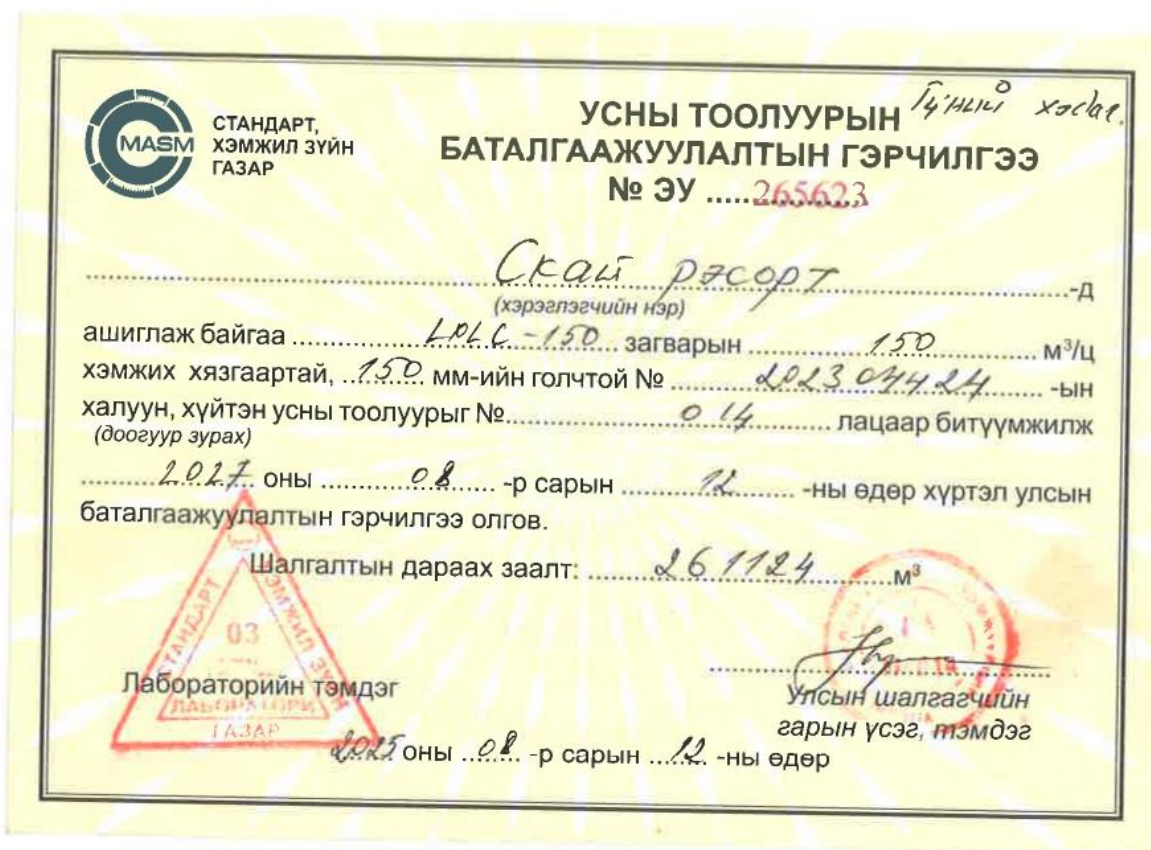 MASM
СТАНДАРТ,
ХЭМЖИЛ ЗҮЙН
ГАЗАР
УСНЫ ТООЛУУРЫН
БАТАЛГААЖУУЛАЛТЫН ГЭРЧИЛГЭЭ
№ ЭУ .....265623
Скай рэсорт -д
(хэрэглэгчийн нэр)
ашиглаж байгаа LPLC-150 загварын 150 м³/ц
хэмжих хязгаартай, 150 мм-ийн голчтой № 2023 04424 -ын
халуун, хүйтэн усны тоолуурыг № 014 лацаар битүүмжилж
(доогуур зурах)
2027 оны 08 -р сарын 12 -ны өдөр хүртэл улсын
баталгаажуулалтын гэрчилгээ олгов.
Шалгалтын дараах заалт: 261124 м³
СТАНДАРТ ХЭМЖИЛ ЗҮЙН
03
ЛАБОРАТОРИ
ГАЗАР
Лабораторийн тэмдэг
Улсын шалгагчийн
гарын үсэг, тэмдэг
2025 оны 08 -р сарын 12 -ны өдөр